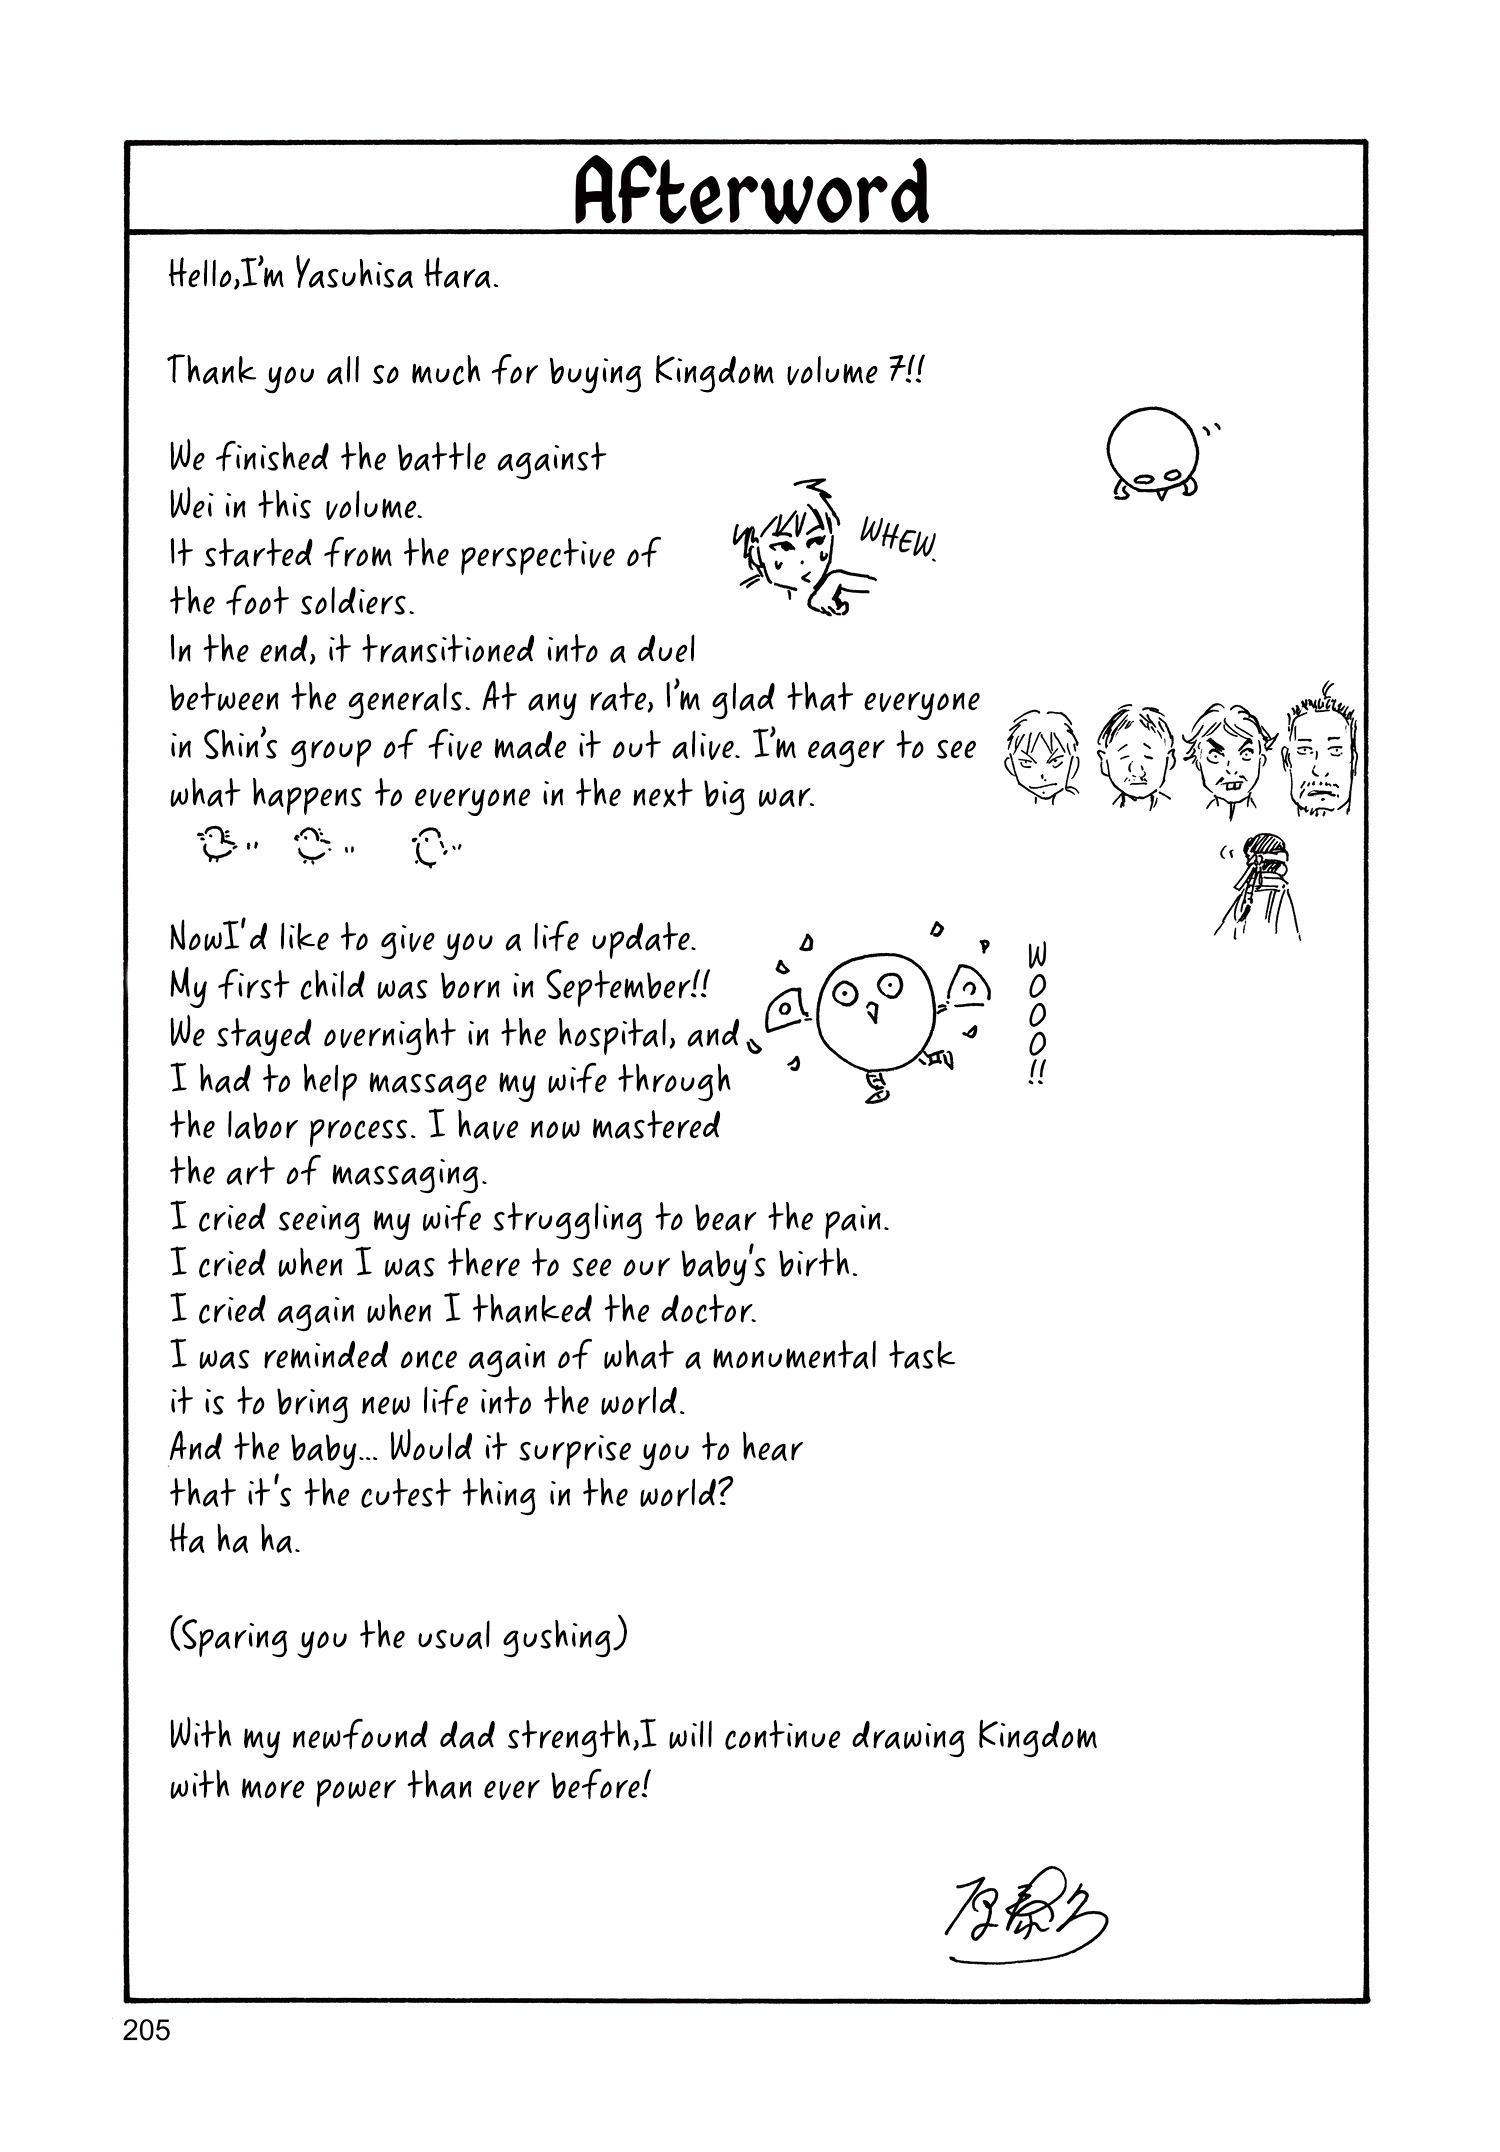 Afterword
Hello,I'm Yasuhisa Hara.
Thank you all so much for buying Kingdom volume 7!!
We finished the battle against
Wei in this volume.
WHEW.
It started from the perspective of
the foot soldiers.
In the end, it transitioned into a duel
between the generals. At any rate, I'm glad that everyone
in Shin's group of five made it out alive. I'm eager to see
what happens to everyone in the next big war.
NowI'd like to give you a life update.
My first child was born in September!!
WOOOO!!
We stayed overnight in the hospital, and
I had to help massage my wife through
the labor process. I have now mastered
the art of massaging.
I cried seeing my wife struggling to bear the pain.
I cried when I was there to see our baby's birth.
I cried again when I thanked the doctor.
I was reminded once again of what a monumental task
it is to bring new life into the world.
And the baby... Would it surprise you to hear
that it's the cutest thing in the world?
Ha ha ha.
(Sparing you the usual gushing)
With my newfound dad strength,I will continue drawing Kingdom
with more power than ever before!
原泰久
205